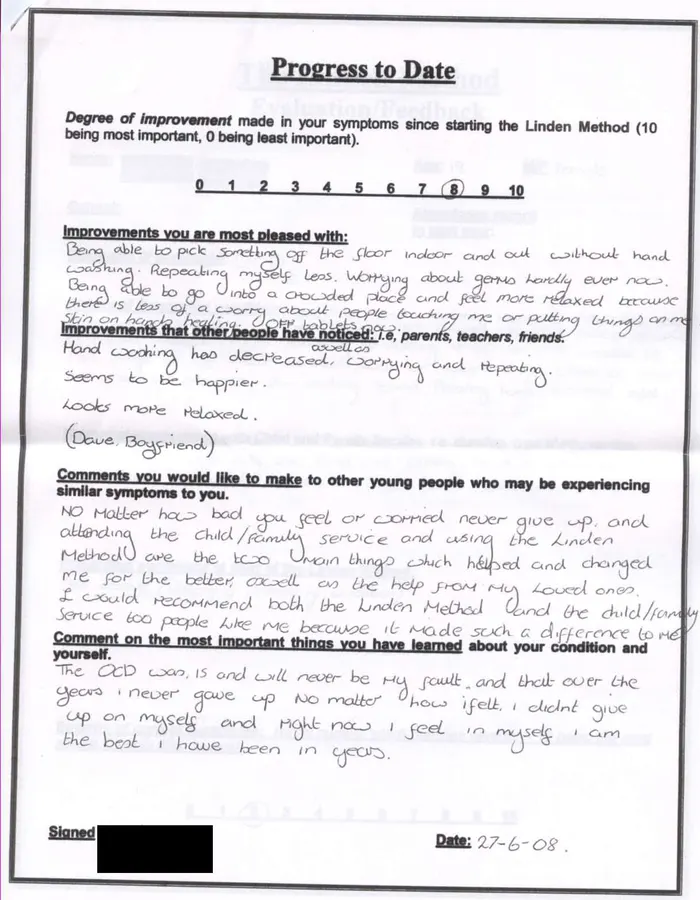 Progress to Date
Degree of improvement made in your symptoms since starting the Linden Method (10
being most important, 0 being least important).
0 1 2 3 4 5 6 7 8 9 10
Improvements you are most pleased with:
Being able to pick something off the floor indoor and out without hand
washing. Repeating myself less. Worrying about germs hardly ever now.
Being able to go into a crowded place and feel more relaxed because
there is less of a worry about people touching me or putting things on me
Skin on hands healing. OFF tablets now.
Improvements that other people have noticed: i.e, parents, teachers, friends.
aswell as
Hand washing has decreased, worrying and repeating.
Seems to be happier.
Looks more relaxed.
(Dave, Boyfriend)
Comments you would like to make to other young people who may be experiencing
similar symptoms to you.
NO Matter how bad you feel or worried never give up, and
attending the child/family service and using the Linden
Method are the two main things which helped and changed
me for the better, aswell as the help from my loved ones.
I would recommend both the Linden Method and the child/family
Service too people like me because it made such a difference to me
Comment on the most important things you have learned about your condition and
yourself.
The OCD was, is and will never be my fault, and that over the
years i never gave up no matter how i felt. i didnt give
up on myself and right now i feel in myself i am
the best i have been in years.
Signed
Date: 27-6-08.